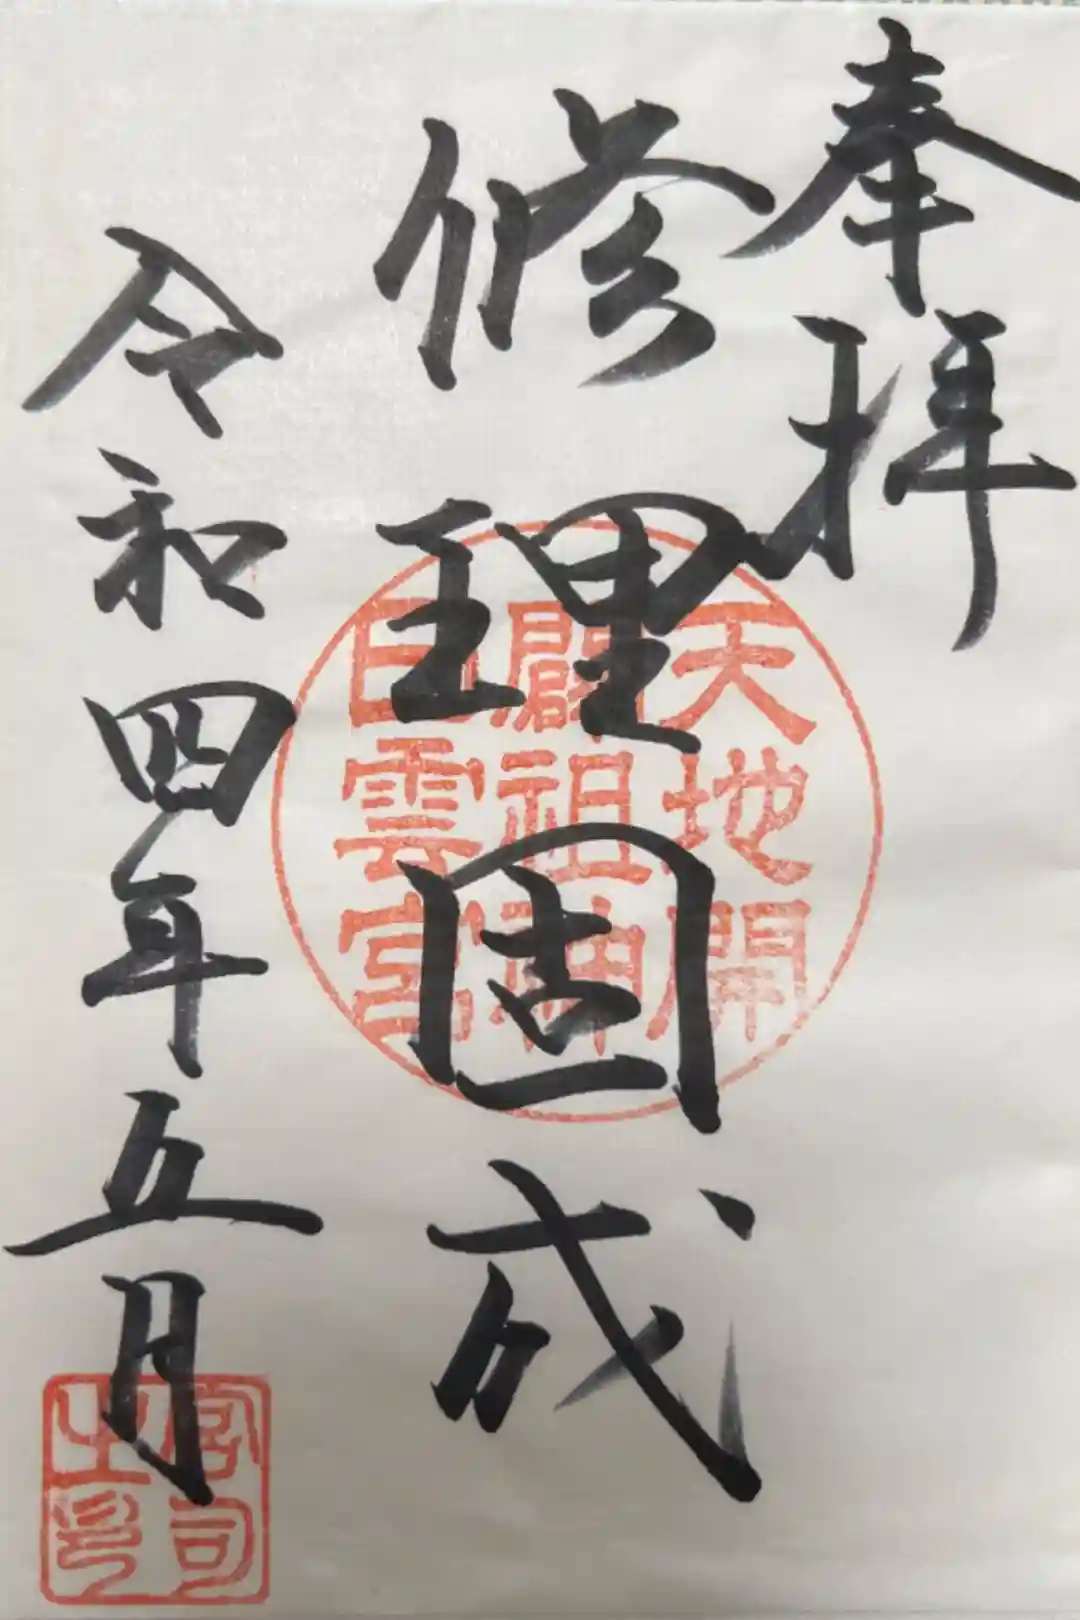 奉拝
修理固成
天地開
闢祖神
日雲宮
令和四年五月
宮司
之印